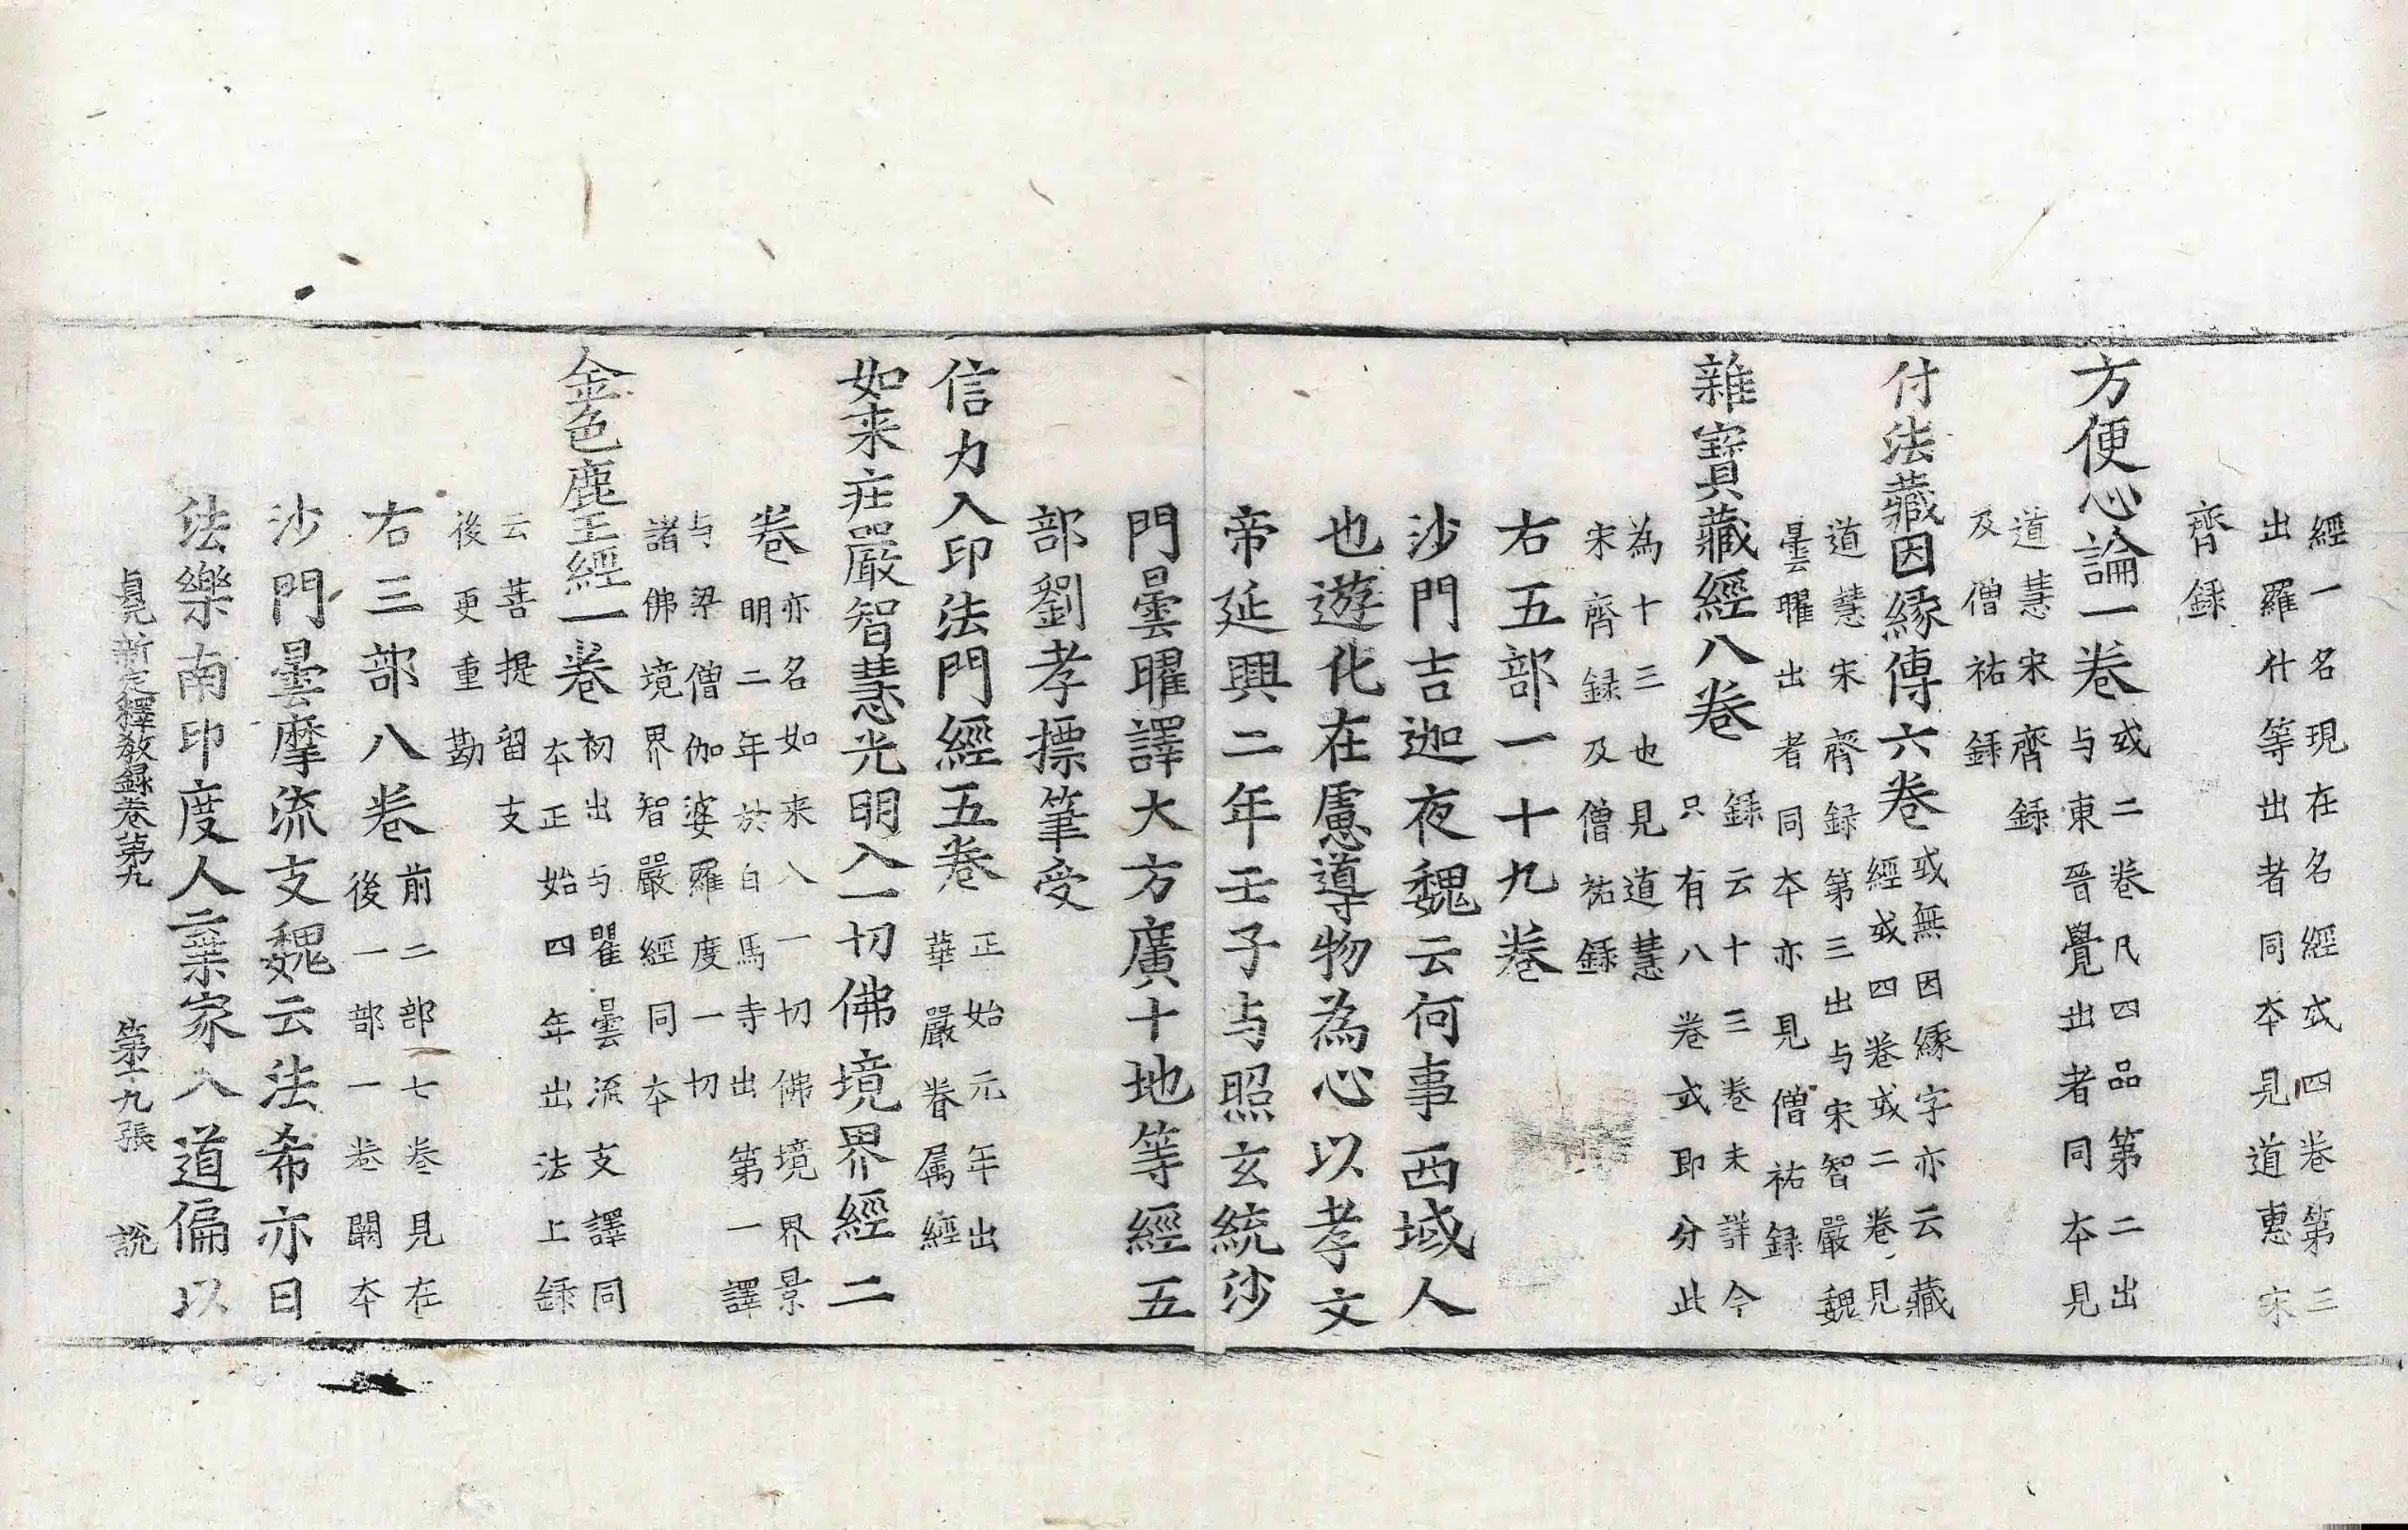 經一名現在名經或四卷第三
出羅什等出者同本見道惠宋
齊録
方便心論一卷
或二卷凡四品第二出
与東晉覺出者同本見
道慧宋齊録
及僧祐録
付法藏因縁傳六卷
或無因縁字亦云藏
經或四卷或二卷見
道慧宋齊録第三出与宋智嚴魏
曇曜出者同本亦見僧祐録
雜寶藏經八卷
録云十三卷未詳今
只有八卷或即分此
為十三也見道慧
宋齊録及僧祐録
右五部一十九卷
沙門吉迦夜魏云何事西域人
也遊化在慮導物為心以孝文
帝延興二年壬子与照玄統沙
門曇曜譯大方廣十地等經五
部劉孝摽筆受
信力入印法門經五卷
正始元年出
華嚴眷属經
如来莊嚴智慧光明入一切佛境界經二
卷
亦名如来入一切佛境界景
明二年於白馬寺出第一譯
与梁僧伽婆羅度一切
諸佛境界智嚴經同本
金色鹿王經一卷
初出与瞿曇流支譯同
本正始四年出法上録
云菩提留支
後更重勘
右三部八卷
前二部七卷見在
後一部一卷闕本
沙門曇摩流支魏云法希亦曰
法樂南印度人云業家入道偏以
貞元新定釋教録卷第九　第十九張　説